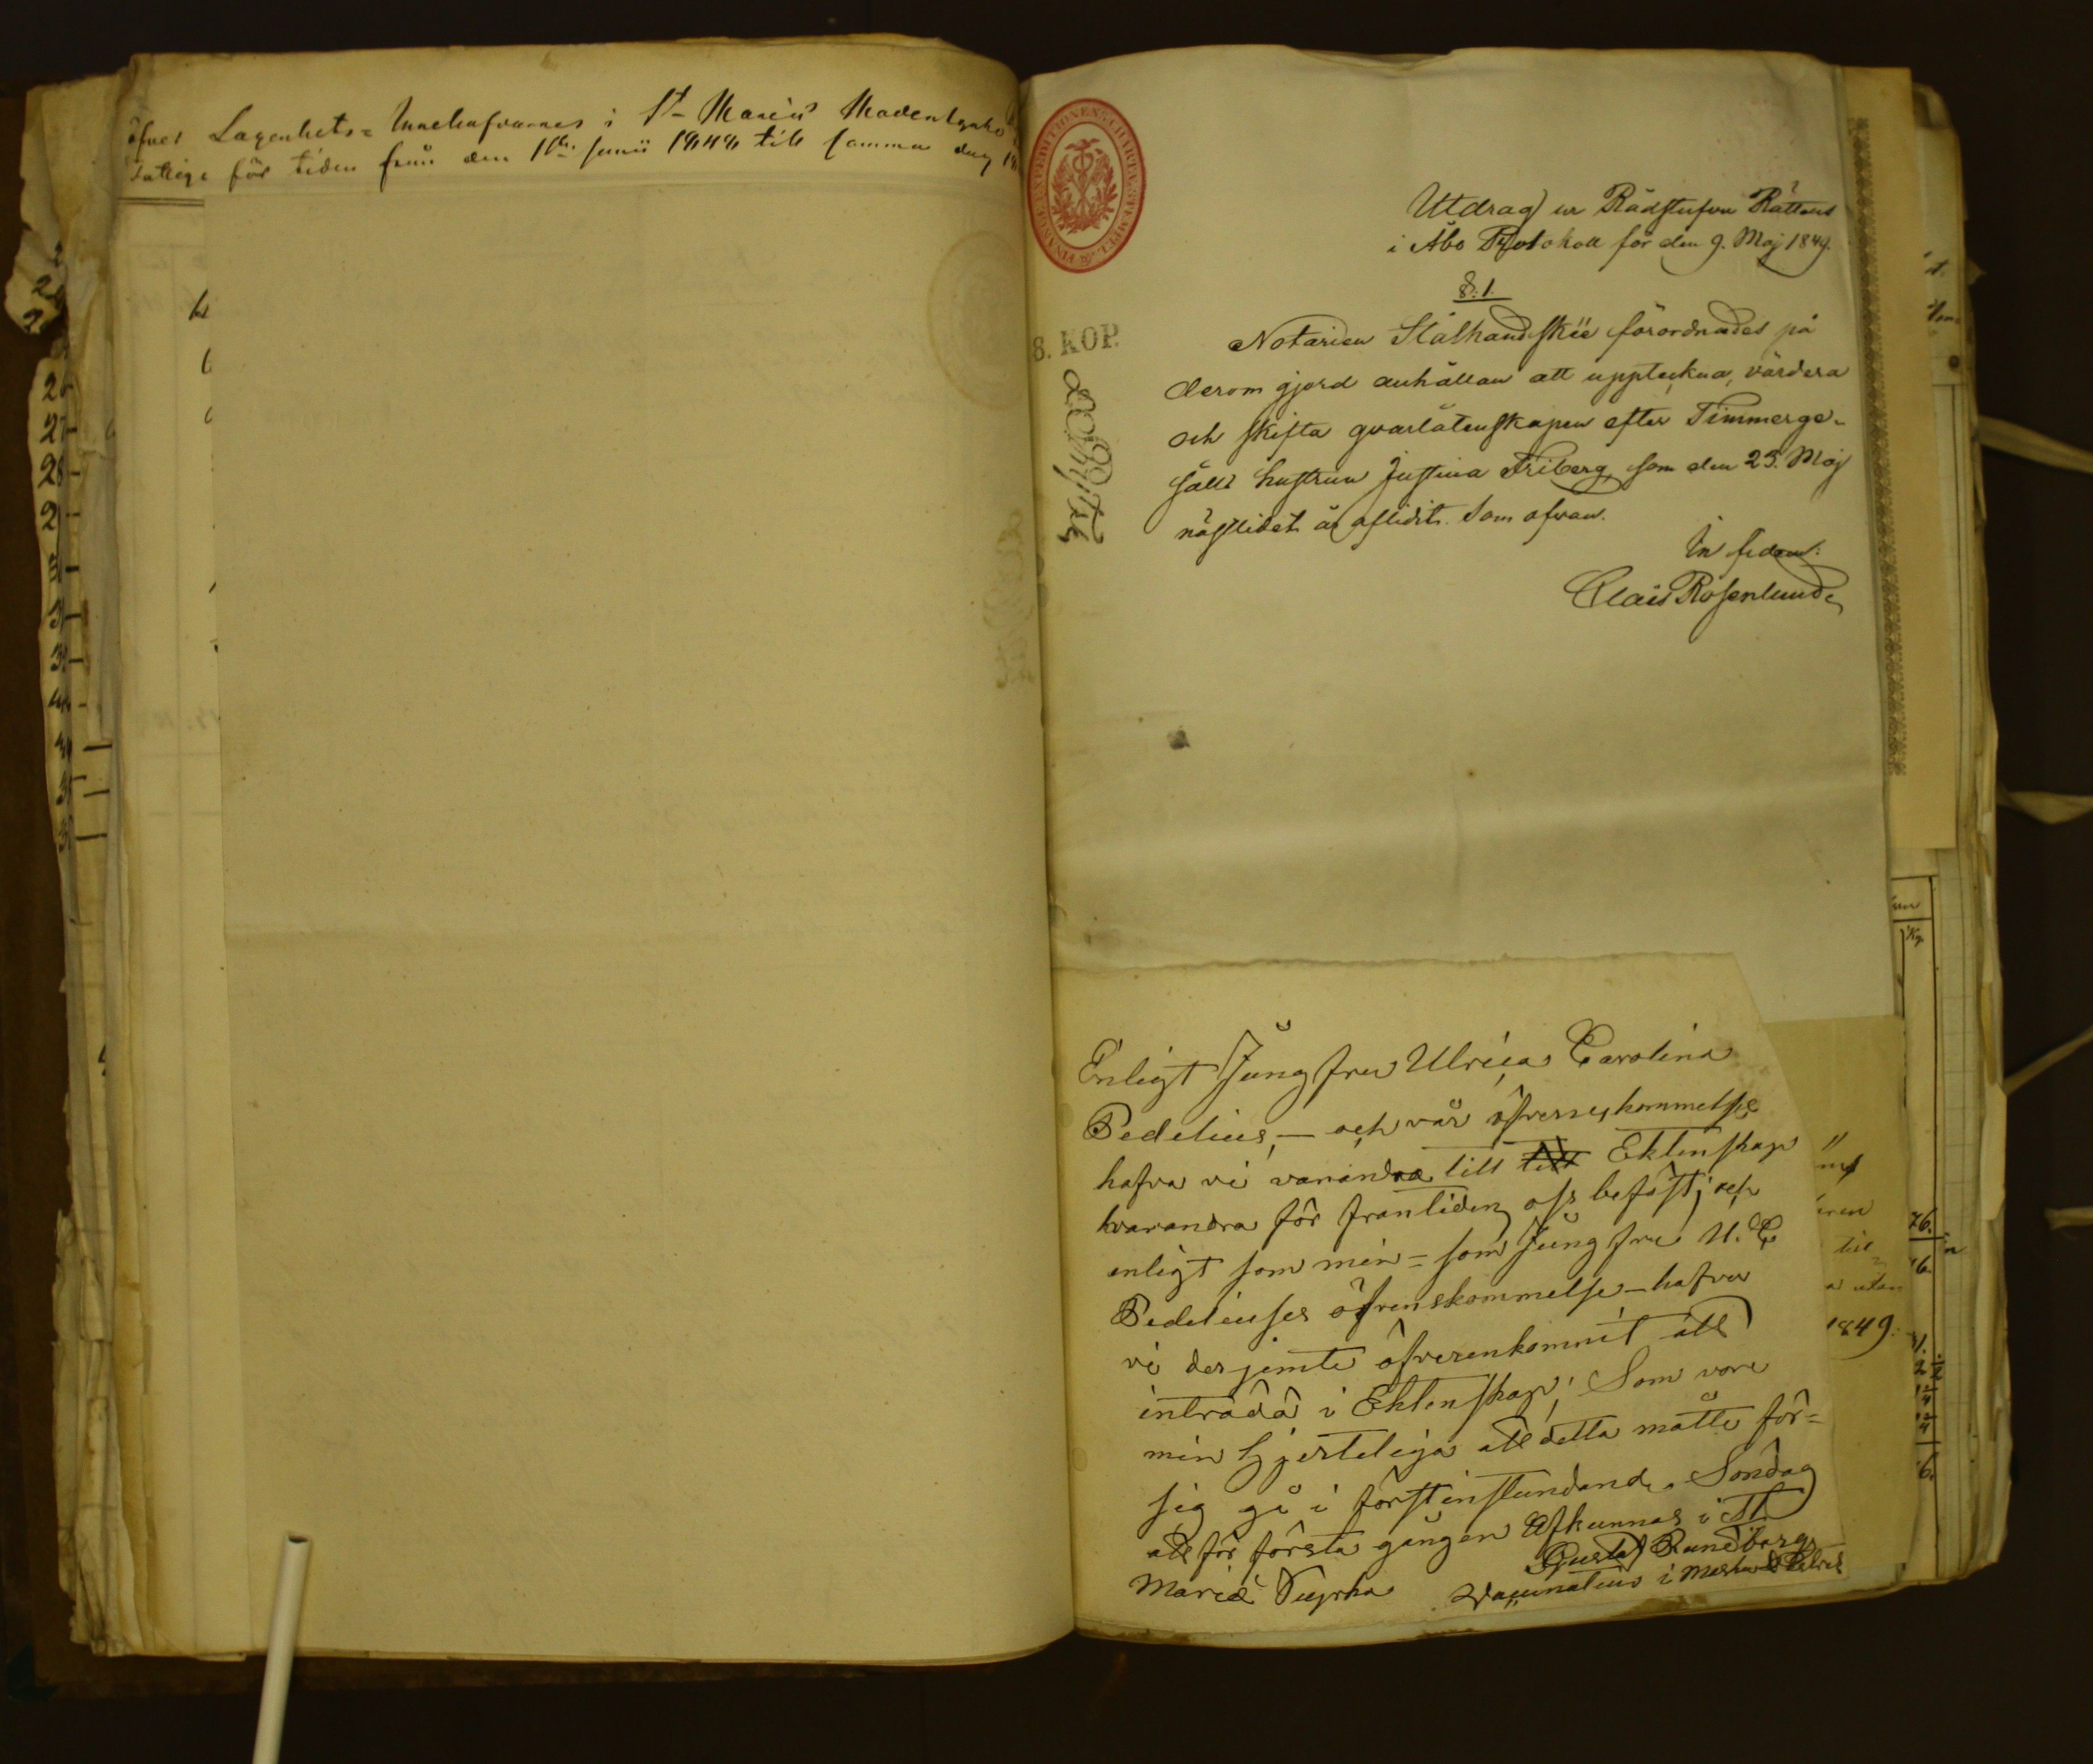 öfver Lägenhets= Innehafvarnes i St Mariæ
för tiden från den 1ste Junii 1848 till samma dag
Utdrag ur Rådstufvu Rättens
i Åbo Protokoll för den 9. Maj 1849.
§. 1.
Notarien Stålhandske förordnades på
derom gjord anhållan att uppteckna, värdera
och skifta qvarlåtenskapen efter Timmerge-
säll hustrun Justina Friberg, som den 25. Maj
nästlidet år aflidit. Som ofvan.
In fidem:
Clais Rosenlund
8. KOP.
Enligt Jungfru Ulrica Carolina
Pedelius, — och vår öfverenskommelse
hafva vi varandra till till Ektenskap
hvarandra för framtiden oss befäst; och
enligt som min = som Jungfru U. C
Pedeliuses öfverenskommelse — hafva
vi derjemte öfverenkommit att
inträda i Ektenskap; Som vore
min hjerteliga att detta måtte för=
sig gå i förstinstundande Söndag
att för första gången Afkunnas i St
Mariæ Kyrka
Gustaf Rundborg
i
till
utan
1849.
26.